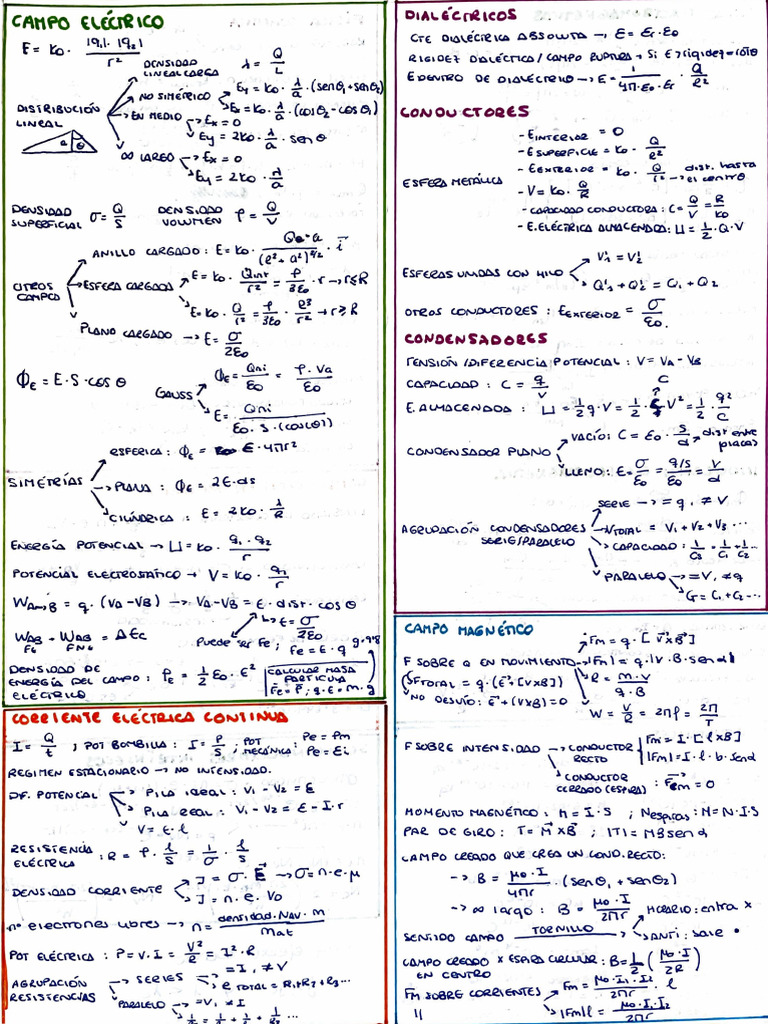 CAMPO ELÉCTRICO
E = K0 · |q1| · |q2| / r²
DENSIDAD LINEAL CARGA λ = Q/L
DISTRIBUCIÓN LINEAL
NO SIMÉTRICO
Ey = K0 · λ/a · (senθ1 + senθ2)
Ex = K0 · λ/a · (cosθ2 - cosθ1)
EN MEDIO
Ex = 0
Ey = 2K0 · λ/a · senθ
a θ
∞ LARGO
Ex = 0
Ey = 2K0 · λ/a
DENSIDAD SUPERFICIAL σ = Q/S
DENSIDAD VOLUMEN ρ = Q/V
OTROS CAMPOS
ANILLO CARGADO : E = K0 · Q · a / (R² + a²)^3/2 · i
ESFERA CARGADA
E = K0 · Qint/r² = ρ/3ε0 · r → r ≤ R
E = K0 · Q/r² = ρ/3ε0 · R³/r² → r ≥ R
PLANO CARGADO → E = σ/2ε0
ΦE = E · S · cos θ
GAUSS
ΦE = Qni/ε0 = ρ · Va/ε0
E = Qni / ε0 · S · (cos(θ))
SIMETRÍAS
ESFERICA : ΦE = E · 4πr²
PLANA : ΦE = 2E · ds
CILÍNDRICA : E = 2K0 · λ/R
ENERGÍA POTENCIAL → U = K0 · q1 · q2 / r
POTENCIAL ELECTROSTÁTICO → V = K0 · q1/r
WA→B = q · (VA - VB) → VA - VB = E · dist · cos θ
E = σ/2ε0
WAB FE + WAB FNE = ΔEc
Puede ser Fe ; Fe = E · q
g 9'8
DENSIDAD DE ENERGÍA DEL CAMPO ELÉCTRICO : ρE = 1/2 ε0 · E²
CALCULAR MASA PARTICULA
Fe = P ; q · E = m · g
CORRIENTE ELÉCTRICA CONTINUA
I = Q/t ; POT BOMBILLA : I = P/S ; POT MECÁNICA : Pe = Pm
Pe = Ei
REGIMEN ESTACIONARIO → NO INTENSIDAD.
DF. POTENCIAL
Pila ideal : V1 - V2 = E
Pila real : V1 - V2 = E - I · r
V = E · l
RESISTENCIA ELÉCTRICA : R = ρ · l/S = 1/σ · l/S
DENSIDAD CORRIENTE
J = σ · E → σ = n · e · μ
J = n · e · V0
nº electrones libres → n = densidad · Nav · m / Mat
POT ELÉCTRICA : P = V · I = V²/R = I² · R
AGRUPACIÓN RESISTENCIAS
SERIES
= I, ≠ V
R TOTAL = R1 + R2 + R3...
PARALELO
= V, ≠ I
DIALÉCTRICOS
CTE DIALÉCTRICA ABSOLUTA → E = Er · E0
RIGIDEZ DIALÉCTICA / CAMPO RUPTURA → Si E > rigidez = roto
E DENTRO DE DIALÉCTRICO → E = 1/4π · ε0 · εr · Q/R²
CONDUCTORES
ESFERA METÁLICA
- E INTERIOR = 0
- E SUPERFICIE = K0 · Q/R²
- E EXTERIOR = K0 · Q/r² → dist. hasta el centro
- V = K0 · Q/R
- CAPACIDAD CONDUCTORA : C = Q/V = R/K0
- E. ELÉCTRICA ALMACENADA : U = 1/2 · Q · V
ESFERAS UNIDAS CON HILO
V'1 = V'2
Q'1 + Q'2 = Q1 + Q2
OTROS CONDUCTORES : E EXTERIOR = σ/ε0
CONDENSADORES
TENSIÓN / DIFERENCIA POTENCIAL : V = VA - VB
CAPACIDAD : C = q/V
C
E. ALMACENADA : U = 1/2 q · V = 1/2 · V² = 1/2 · q²/C
CONDENSADOR PLANO
VACÍO : C = ε0 · S/d → dist entre placas
LLENO : E = σ/ε0 = q/S/ε0 = V/d
AGRUPACIÓN CONDENSADORES SERIE/PARALELO
SERIE → = q, ≠ V
VTOTAL = V1 + V2 + V3...
CAPACIDAD : 1/CS = 1/C1 + 1/C2...
PARALELO → = V, ≠ q
CT = C1 + C2...
CAMPO MAGNÉTICO
F SOBRE Q EN MOVIMIENTO
Fm = q · [V x B]
|Fm| = q · |V · B · sen α|
R = m · V / q · B
W = V/R = 2πf = 2π/T
FTOTAL = q · (E + [V x B])
NO DESVÍO : E + (V x B) = 0
F SOBRE INTENSIDAD
CONDUCTOR RECTO
Fm = I · [l x B]
|Fm| = I · l · b · sen α
CONDUCTOR CERRADO (ESPIRA) : Fem = 0
MOMENTO MAGNÉTICO : M = I · S ; N espiras : M = N · I · S
PAR DE GIRO : T = M x B ; |T| = MB sen α
CAMPO CREADO QUE CREA UN COND. RECTO :
→ B = μ0 · I / 4πr · (sen θ1 + sen θ2)
→ ∞ largo : B = μ0 · I / 2πr
SENTIDO CAMPO TORNILLO
HORARIO : entra x
ANTI : sale •
CAMPO CREADO x ESPIRA CIRCULAR : B = 1/2 (μ0 · I / 2R)
EN CENTRO
FM SOBRE CORRIENTES
Fm = μ0 · I1 · I2 / 2πr · l
|Fm|l = μ0 · I1 · I2 / 2πr